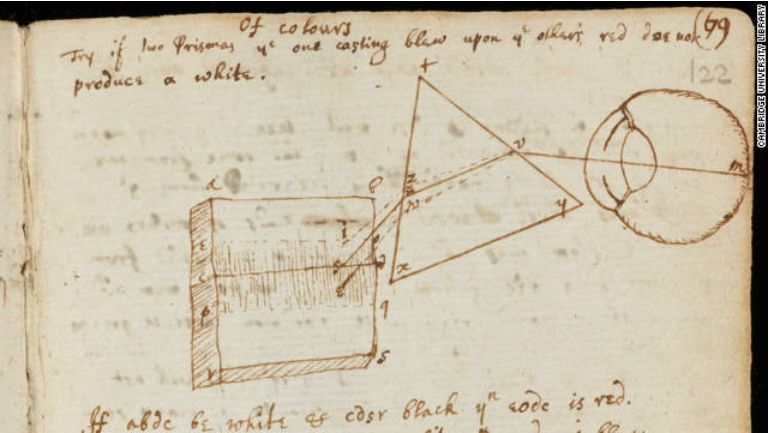 Of colours
Try if two Prismas yᵉ one casting blew upon yᵉ other's red doe not
produce a white.
69
122
t
a
v
z
m
y
x
q
r
s
If abdc be white & cdsr black yⁿ eodc is red.
CAMBRIDGE UNIVERSITY LIBRARY